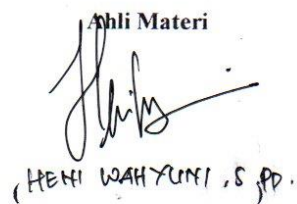 Ahli Materi
(HENI WAHYUNI, S.PD.